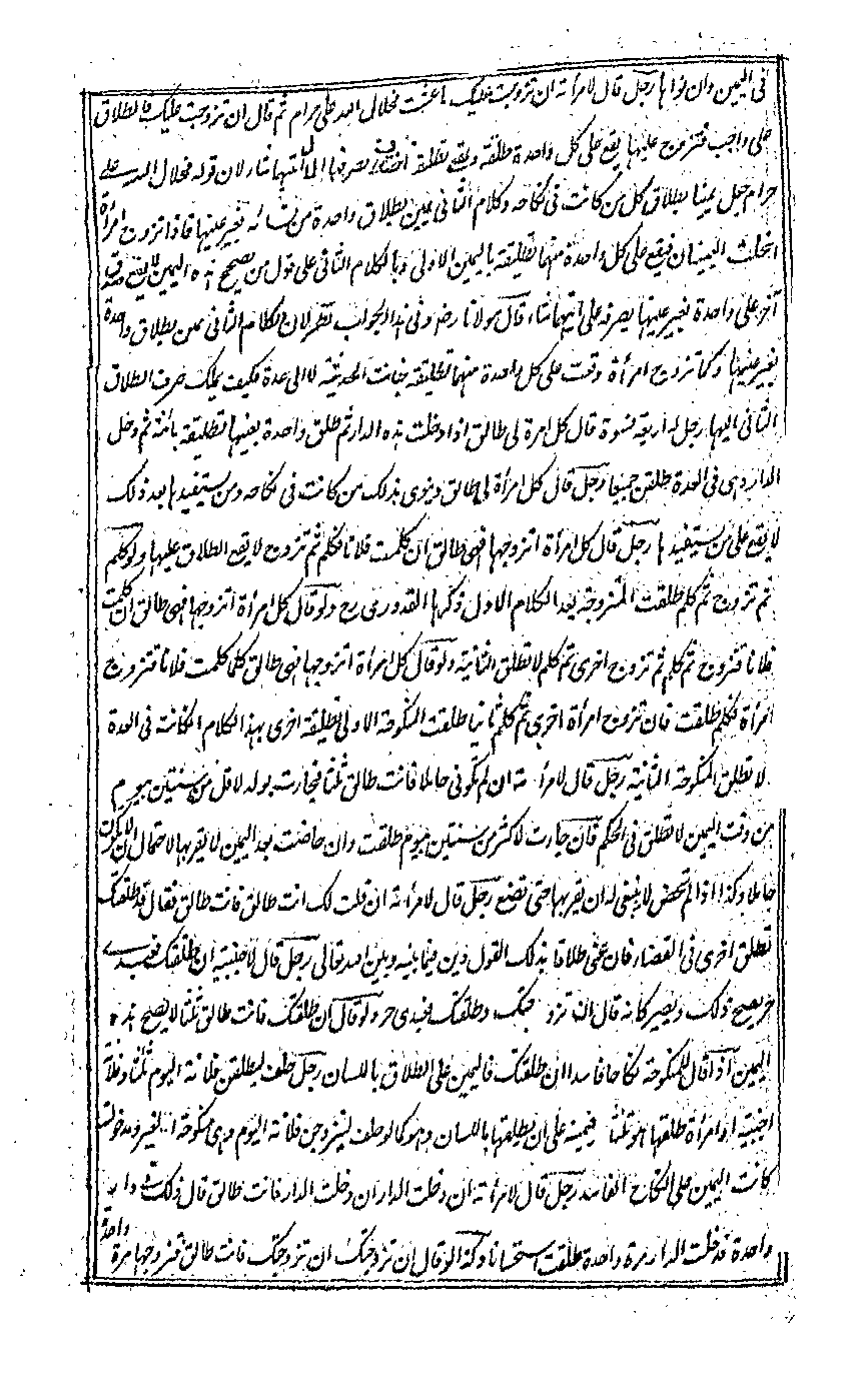 فى اليمين وان نواها رجل قال لامرأته ان تزوجت عليك ما عشت فحلال الله على حرام ثم قال ان تزوجت عليك فالطلاق
على واجب فتزوج عليها يقع على كل واحدة طلقة ويقع تطليقة اخرى يصرفها الى ايتهما شاء لان قوله فحلال الله على
حرام جعل يمينا بطلاق كل من كانت فى نكاحه وكلام الثانى يمين بطلاق واحدة من نسائه بغير عينها فاذا تزوج امرأة
انحلت اليمينان فيقع على كل واحدة منهما تطليقة باليمين الاولى وبالكلام الثانى على قول من يصحح هذه اليمين لا يقع طلاق
آخر على واحدة بغير عينها يصرفه على ايتهما شاء قال مولانا رضى وفى هذا الجواب نظر لان الكلام الثانى يمين بطلاق واحدة
بغير عينها وكما تزوج امرأة وقعت على كل واحدة منهما تطليقة فبانت الحديثة لا الى عدة فكيف يملك صرف الطلاق
الثانى اليها رجل له اربعة نسوة قال كل امرة لى طالق اذا دخلت هذه الدار ثم طلق واحدة بعينها تطليقة بائنة ثم دخل
الدار وهى فى العدة طلقن جميعا رجل قال كل امرأة لى طالق وينوى بذلك من كانت فى نكاحه ومن يستفيدها بعد ذلك
لا يقع على من يستفيدها رجل قال كل امرأة اتزوجها فهى طالق ان كلمت فلانا فكلم ثم تزوج لا يقع الطلاق عليها ولو كلم
ثم تزوج ثم كلم طلقت المتزوجة بعد الكلام الاول ذكرها القدورى رح ولو قال كل امرأة اتزوجها فهى طالق ان كلمت
فلانا فتزوج ثم كلم ثم تزوج اخرى ثم كلم لا تطلق الثانية ولو قال كل امرأة اتزوجها فهى طالق كلما كلمت فلانا فتزوج
امرأة فكلم طلقت فان تزوج امرأة اخرى ثم كلم ثانيا طلقت المنكوحة الاولى تطليقة اخرى بهذا الكلام ان كانت فى العدة
لا تطلق المنكوحة الثانية رجل قال لامرأته ان لم تكونى حاملا فانت طالق ثلثا فجاءت بولد لاقل من سنتين بيوم
من وقت اليمين لا تطلق فى الحكم فان جاءت لاكثر من سنتين بيوم طلقت وان حاضت بعد اليمين لا يقربها لاحتمال ان لا تكون
حاملا وكذا اذا لم تحض لا ينبغى له ان يقربها حتى تضع رجل قال لامرأته ان قلت لك انت طالق فانت طالق فقال قد طلقتك
تطلق اخرى فى القضاء فان عنى طلاقا بذلك القول دين فيما بينه وبين الله تعالى رجل قال لاجنبية ان طلقتك فعبدى
حر يصح ذلك ويصير كانه قال ان تزوجتك وطلقتك فعبدى حر ولو قال ان طلقتك فانت طالق ثلثا لا يصح هذه
اليمين اذا قال للمنكوحة نكاحا فاسدا ان طلقتك فاليمين على الطلاق باللسان رجل حلف ليطلقن فلانة اليوم ثلثا وفلانة
اجنبية او امرأة طلقها هو ثلثا فيمينه على ان يطلقها باللسان وهو كما لو حلف ليتزوجن فلانة اليوم وهى منكوحة الغير ومدخولة
كانت اليمين على النكاح الفاسد رجل قال لامرأته ان دخلت الدار ان دخلت الدار فانت طالق قال ذلك فى دار
واحدة فدخلت الدار مرة واحدة طلقت استحسانا وكذا لو قال ان تزوجتك ان تزوجتك فانت طالق فتزوجها مرة واحدة